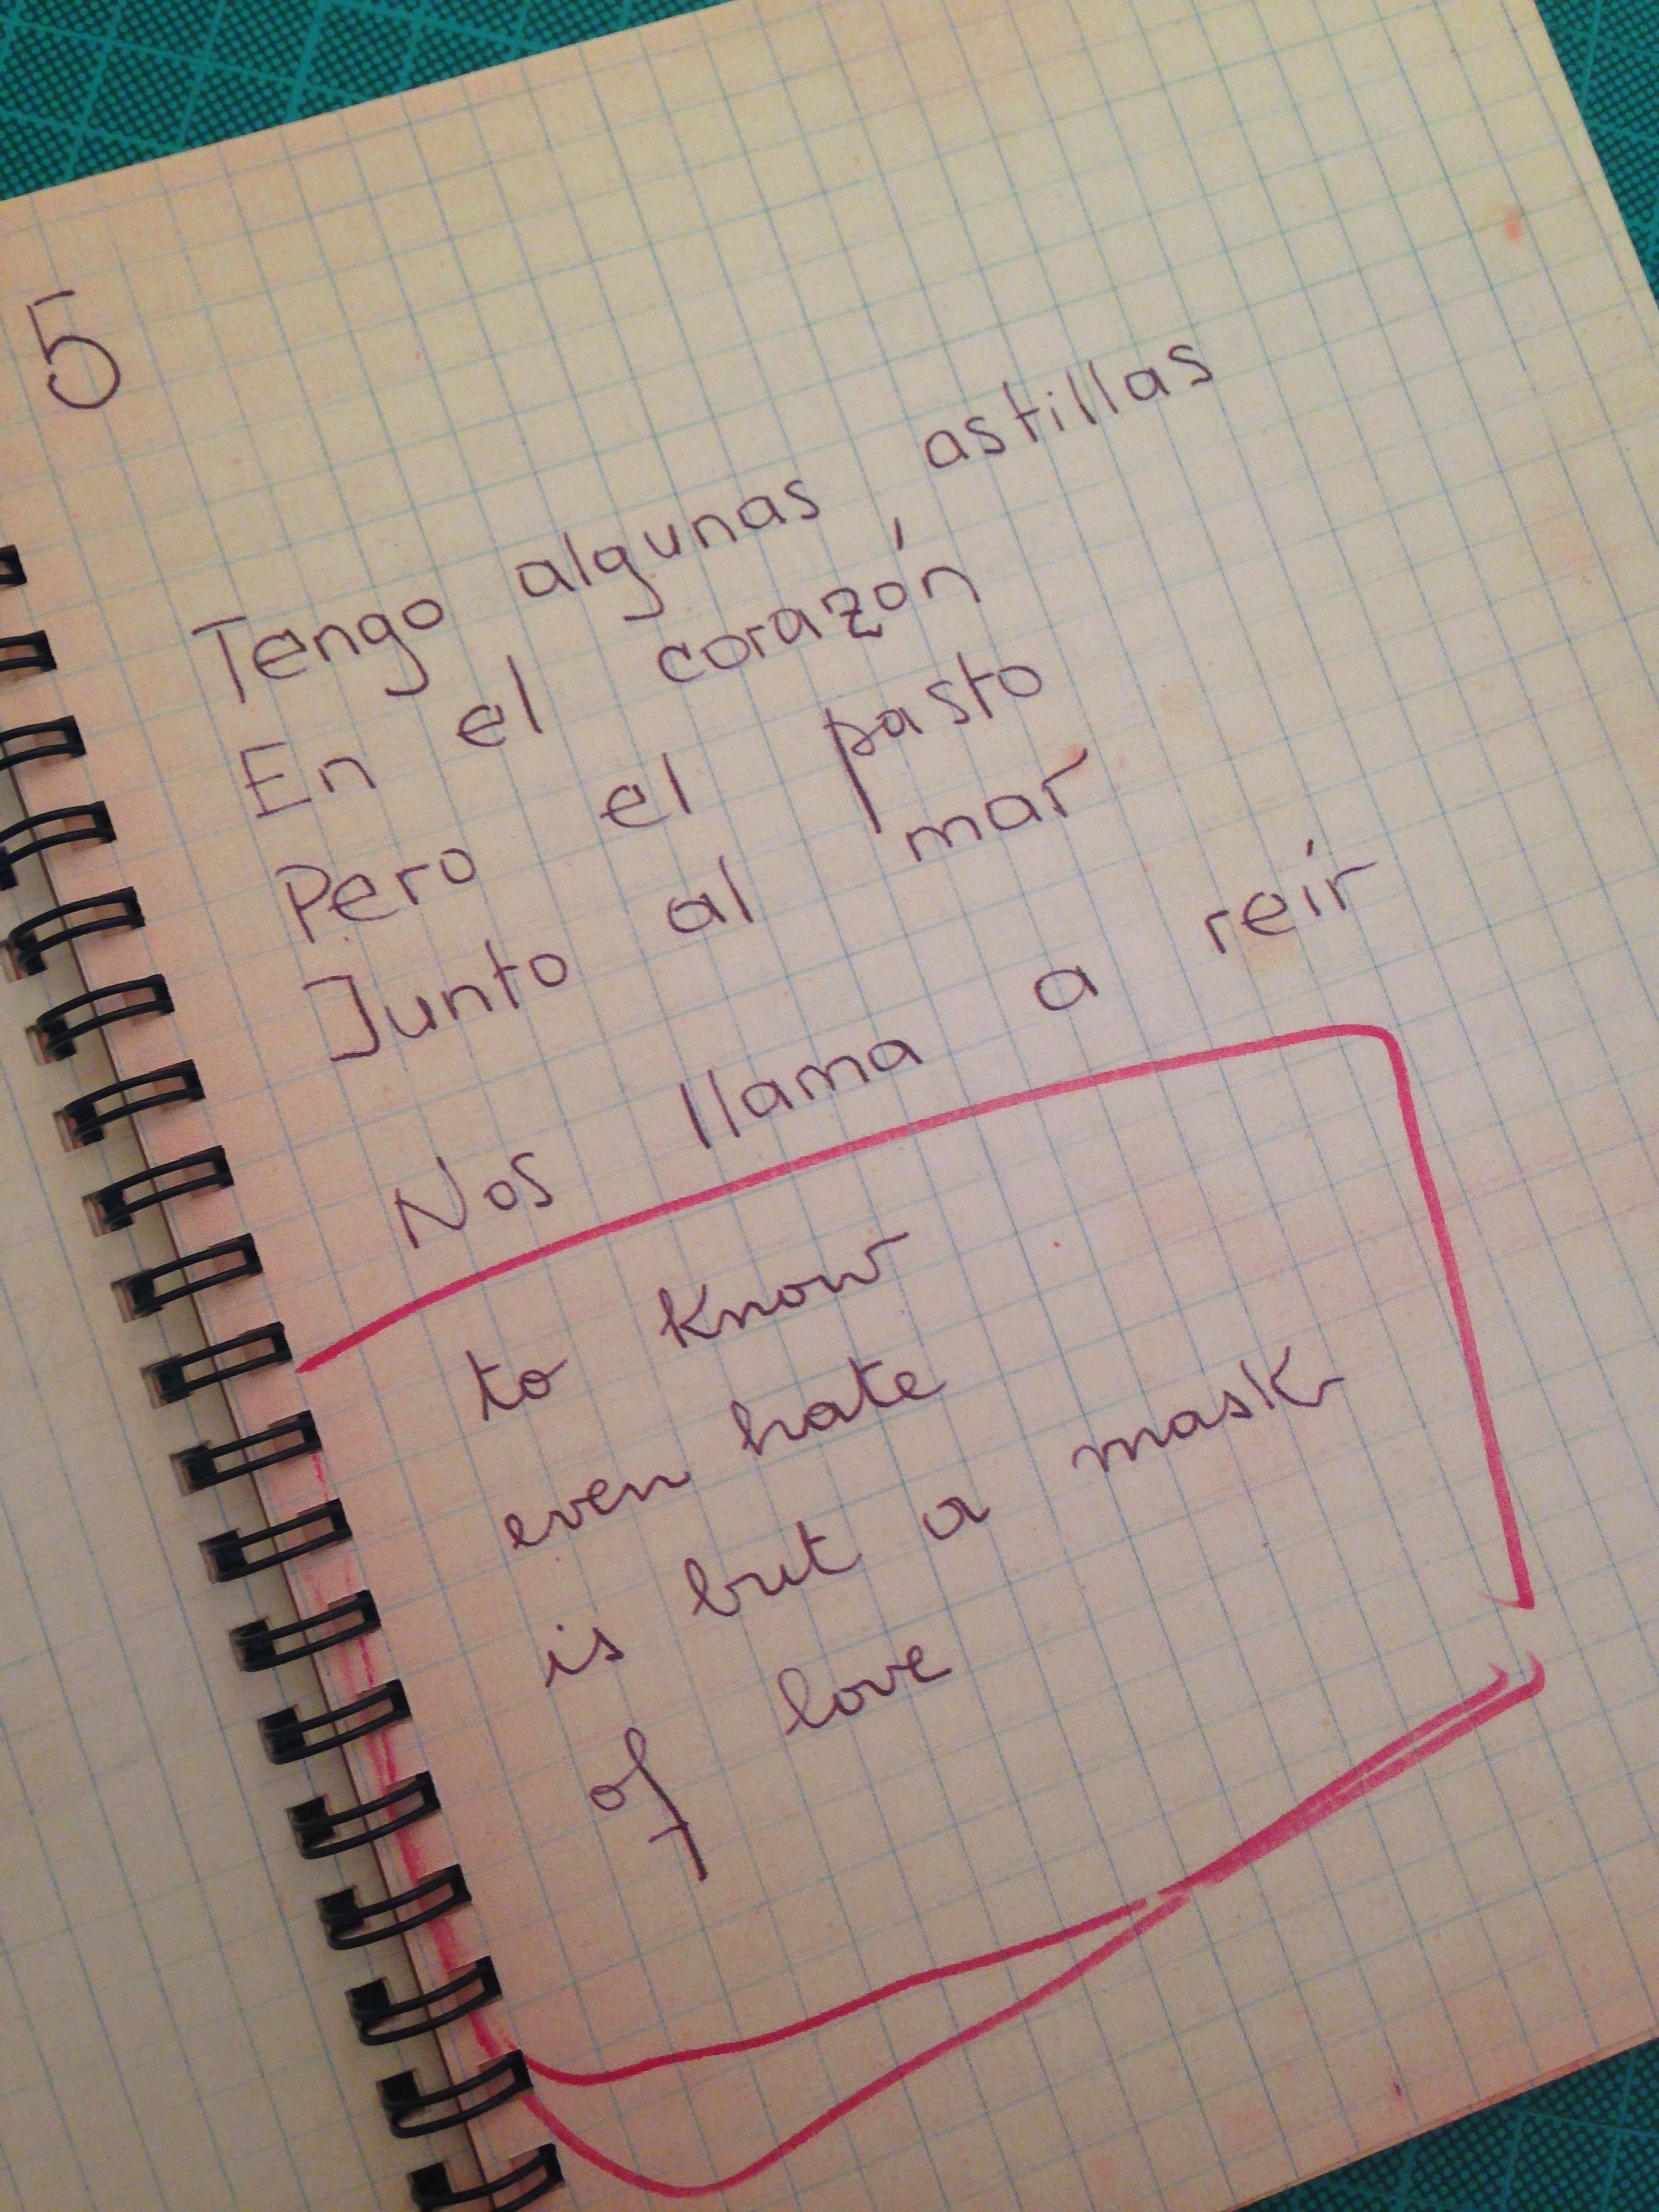 5
Tengo algunas astillas
En el corazón
Pero el pasto
Junto al mar
Nos llama a reír
to know
even hate
is but a mask
of love